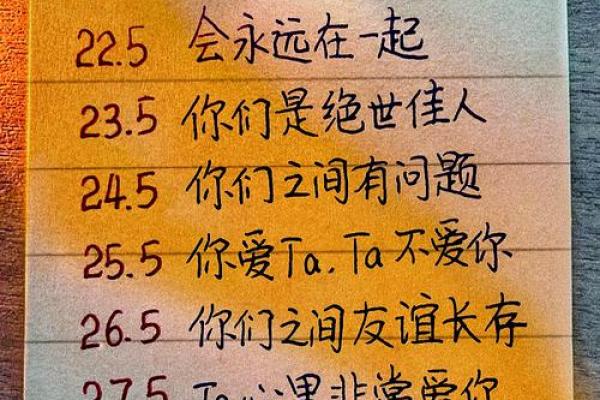 22.5 会永远在一起
23.5 你们是绝世佳人
24.5 你们之间有问题
25.5 你爱Ta.Ta不爱你
26.5 你们之间友谊长存
27.5 Ta心里非常爱你